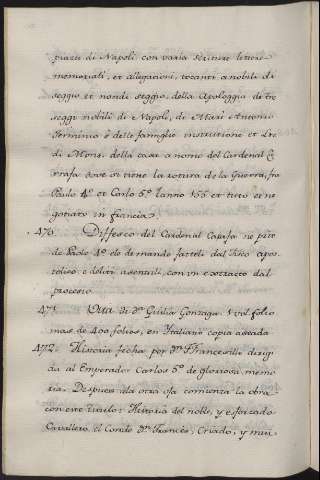 piazze di Napoli, con varie scritture lettere
memoriali, et allegazioni, tocanti a nobili di
seggio et non di seggio, della Apologgia di tre
seggi nobili di Napoli, di Marc Antonio
Terminio é delle famiglie
di Mons. della casa a nome del Cardenal Ca
rrafa dove si tiene la rotura de la Guerra, fra
Paulo 4º et Carlo 5º l'anno 155 et tieto et ne
gotiato in francia.
470. Diffesco del Cardenal Carafa ne pite
de Paolo 4º
tolico é delitti asentili, con in extracto dal
procesio
471. Vita di Dª Giulia Gonzaga 1 vol. folio
mas de 400 folios, en Italiano copia
472. Historia fecha por Dn Francesillo dirigi
da al Emperador Carlos 5º de gloriosa memo
ria. Despues dela qta comienza la obra
con este titulo: Historia del noble, y esforzado
Cavallero el Conde Dn Francés, Criado, y mui